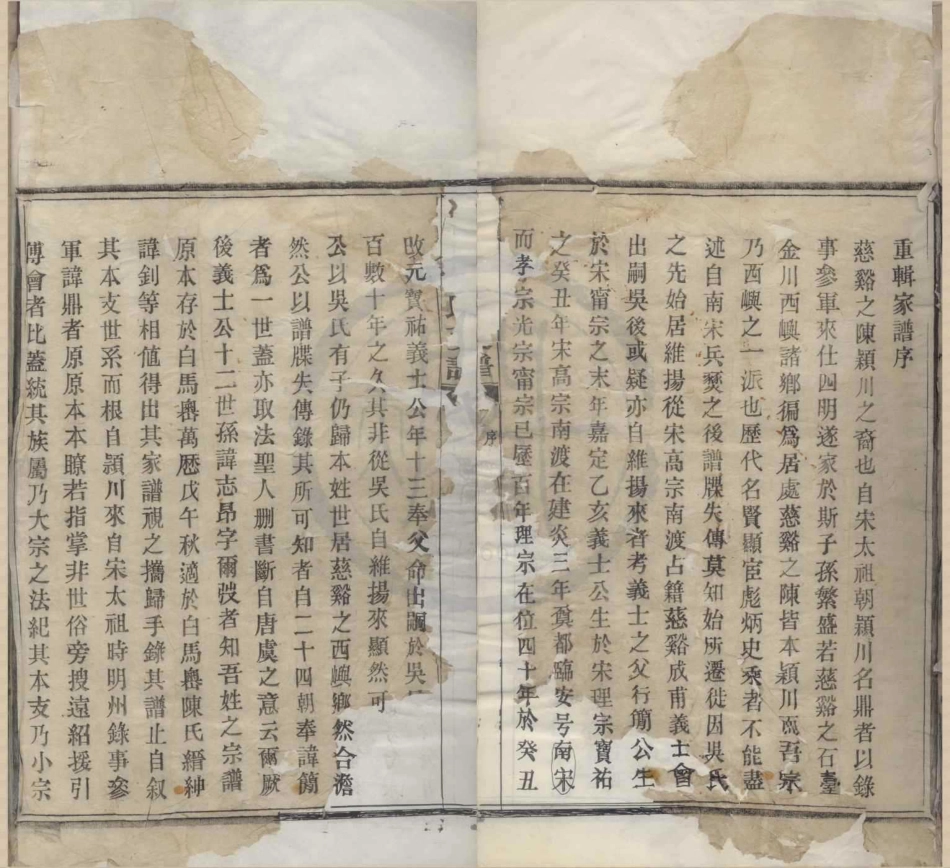 重輯家譜序
慈谿之陳潁川之裔也自宋太祖朝潁川名鼎者以錄
事參軍來仕四明遂家於斯子孫繁盛若慈谿之石臺
金川西嶼諸鄉徧爲居處慈谿之陳皆本潁川而吾宗
乃西嶼之一派也歷代名賢顯宦彪炳史乘者不能盡
述自南宋兵燹之後譜牒失傳莫知始所遷徙因吳氏
之先始居維揚從宋高宗南渡占籍慈谿成甫義士會
出嗣吳後或疑亦自維揚來者考義士之父行簡公生
於宋甯宗之末年嘉定乙亥義士公生於宋理宗寶祐
之癸丑年宋高宗南渡在建炎三年奠都臨安号南宋
而孝宗光宗甯宗已歷百年理宗在位四十年於癸丑
序
改元寶祐義士公年十三奉父命出嗣於吳
百數十年之久其非從吳氏自維揚來顯然可
公以吳氏有子仍歸本姓世居慈谿之西嶼鄉然合澹
然公以譜牒失傳錄其所可知者自二十四朝奉諱簡
者爲一世蓋亦取法聖人刪書斷自唐虞之意云爾厥
後義士公十二世孫諱志昂字爾弢者知吾姓之宗譜
原本存於白馬嶴萬厯戊午秋適於白馬嶴陳氏縉紳
諱釗等相値得出其家譜視之攜歸手錄其譜止自叙
其本支世系而根自潁川來自宋太祖時明州錄事參
軍諱鼎者原原本本瞭若指掌非世俗旁搜遠紹援引
傅會者比蓋統其族屬乃大宗之法紀其本支乃小宗